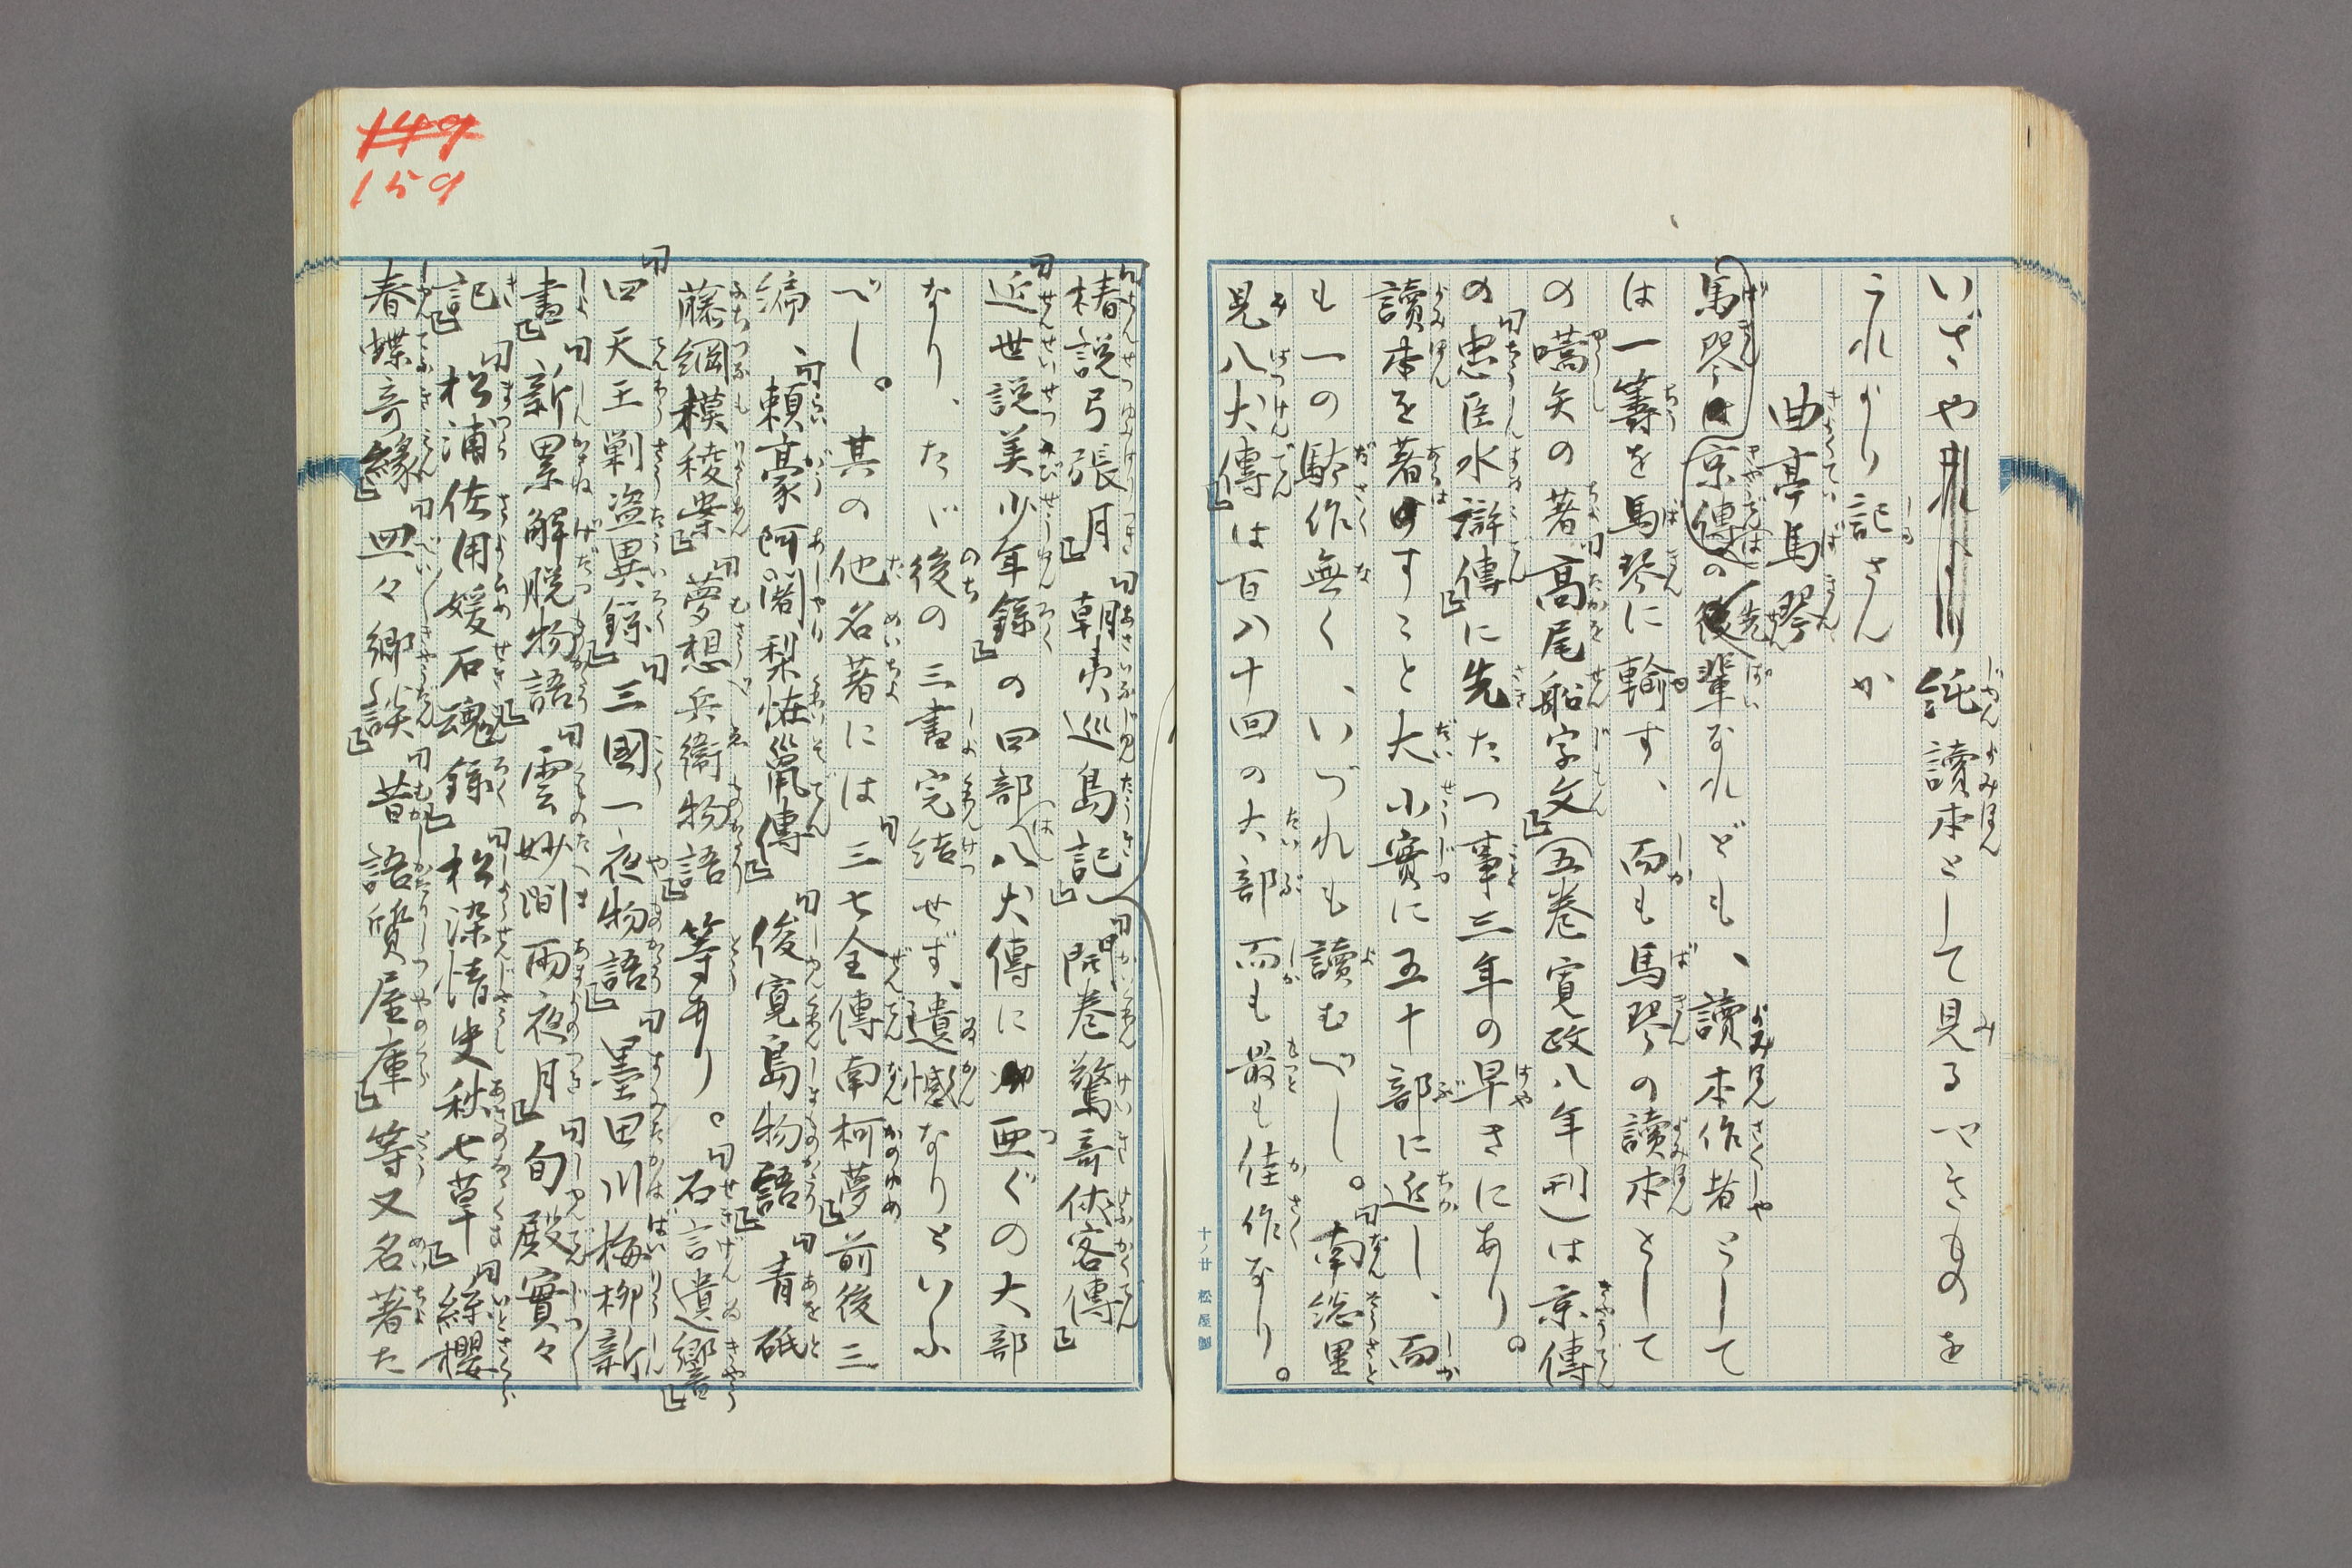 いざや純讀本として見るべきものを
これより記さんか
曲亭馬琴
馬琴は京傳の後輩なれども、讀本作者として
は一籌を馬琴に輸す、而も馬琴の讀本として
の嚆矢の著「高尾船字文」(五巻寛政八年刊)は京傳
の「忠臣水滸傳」に先たつ事三年の早きにあり。
讀本を著すこと大小實に五十部に近し、而
も一の駄作無く、いづれも讀むべし。「南総里
見八犬傳」は百八十回の大部而も最も佳作なり。
十ノ廿 松屋製
149
159
「椿説弓張月」「朝夷巡島記」「開巻驚奇侠客傳」
「近世説美少年録」の四部は八犬傳に亜ぐの大部
なり、たゞ後の三書完結せず、遺憾なりといふ
べし。其の他名著には「三七全傳南柯夢」前後三
編、「頼豪阿闍梨怪鼠傳」「俊寛島物語」「青砥
藤綱模稜案」「夢想兵衛物語」等あり。「石言遺響」
「四天王剿盗異録」「三國一夜物語」「墨田川梅柳新
書」「新累解脱物語」「雲妙間雨夜月」「旬殿實々
記」「松浦佐用媛石魂録」「松染情史秋七草」「絲櫻
春蝶奇縁」「皿々郷談」「昔語質屋庫」等又名著た